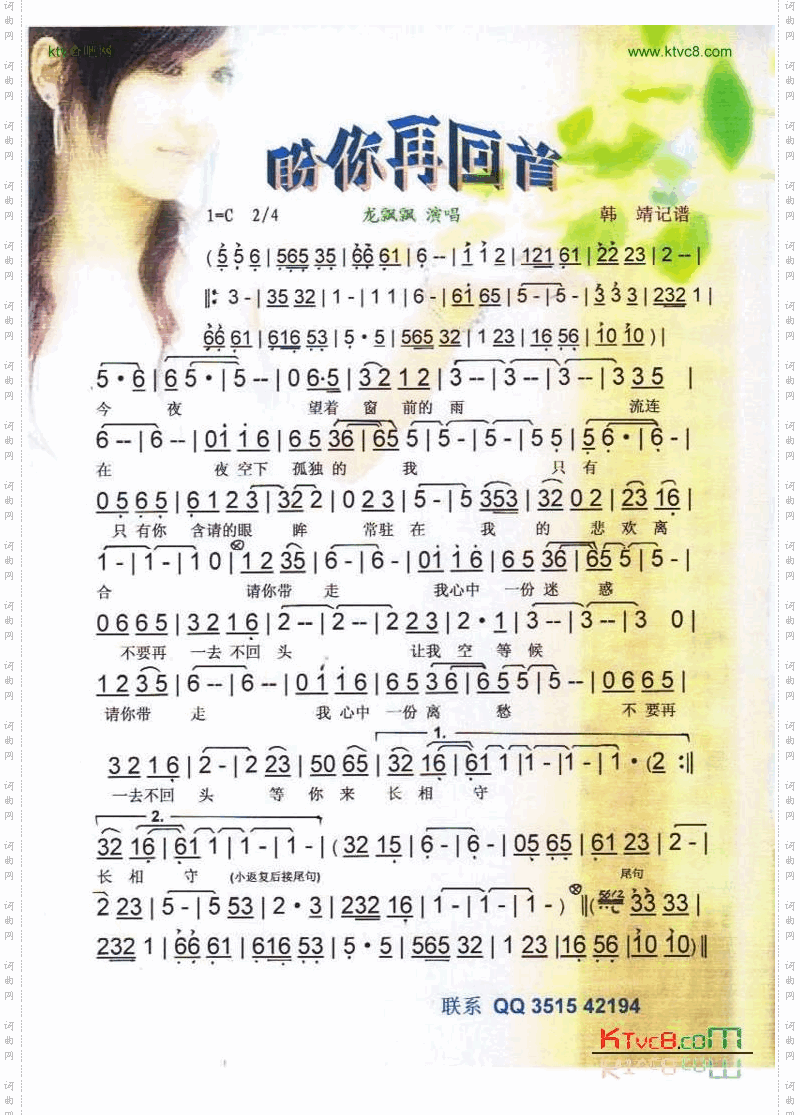 ktvc吧网
www.ktvc8.com
盼你再回首
1=C 2/4 龙飘飘 演唱 韩 靖记谱
(5 5 6 | 565 35 | 66 61 | 6 -- | 1 1 2 | 121 61 | 22 23 | 2 -- |
‖: 3 - | 35 32 | 1 - | 1 1 | 6 - | 61 65 | 5 - | 5 - | 3 3 3 | 232 1 |
66 61 | 616 53 | 5 · 5 | 565 32 | 1 23 | 16 56 | 10 10 ) |
5 · 6 | 6 5 · | 5 -- | 0 6·5 | 3 2 1 2 | 3 -- | 3 -- | 3 -- | 3 3 5 |
今 夜 望着 窗 前的 雨 流连
6 -- | 6 -- | 0 1 1 6 | 6 5 36 | 65 5 | 5 - | 5 - | 5 5 | 5 6 · | 6 - |
在 夜 空下 孤独 的 我 只 有
0 5 6 5 | 6 1 2 3 | 32 2 | 0 2 3 | 5 - | 5 353 | 32 0 2 | 23 16 |
只 有你 含请的眼 眸 常驻 在 我 的 悲 欢 离
1 - | 1 - | 1 0 | 1 2 35 | 6 - | 6 - | 01 1 6 | 6 5 36 | 65 5 | 5 - |
合 请你带 走 我心中 一份 迷 惑
0 6 6 5 | 3 2 1 6 | 2 -- | 2 -- | 2 2 3 | 2 · 1 | 3 -- | 3 -- | 3 0 |
不要再 一去 不回 头 让我 空 等 候
1 2 35 | 6 -- | 6 -- | 0 1 1 6 | 6 5 3 6 | 6 5 5 | 5 -- | 0 6 6 5 |
请你带 走 我 心中 一份 离 愁 不 要再
1.
3 2 1 6 | 2 - | 2 23 | 50 65 | 32 16 | 61 1 | 1 - | 1 - | 1 · (2 :‖
一去不回 头 等 你 来 长 相 守
2.
32 16 | 61 1 | 1 - | 1 - | ( 32 15 | 6 - | 6 - | 05 65 | 61 23 | 2 - |
长 相 守 (小返复后接尾句) 尾句
2 23 | 5 - | 5 53 | 2 · 3 | 232 16 | 1 - | 1 - | 1 - ) ‖( 33 33 |
232 1 | 66 61 | 616 53 | 5 · 5 | 565 32 | 1 23 | 16 56 | 10 10 )‖
联系 QQ 3515 42194
KTvc8.com